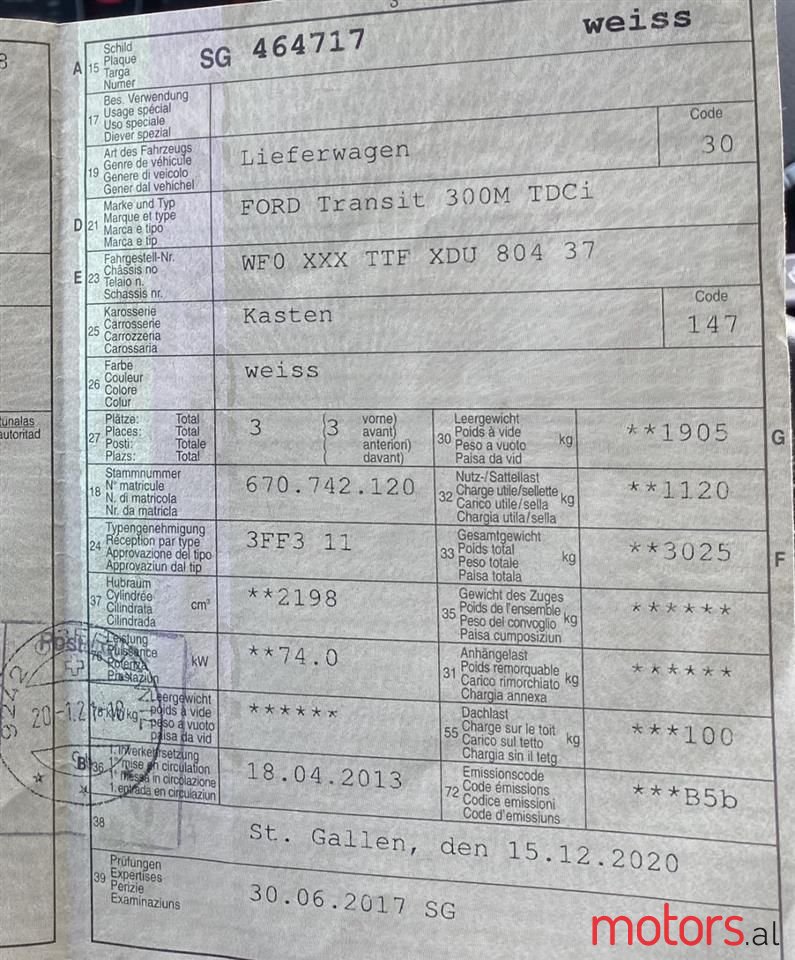 A 15 Schild
Plaque
Targa
Numer
SG 464717 weiss
17 Bes. Verwendung
Usage spécial
Uso speciale
Diever spezial
19 Art des Fahrzeugs
Genre de véhicule
Genere di veicolo
Gener dal vehichel
Lieferwagen
Code
30
D 21 Marke und Typ
Marque et type
Marca e tipo
Marca e tip
FORD Transit 300M TDCi
E 23 Fahrgestell-Nr.
Châssis no
Telaio n.
Schassis nr.
WF0 XXX TTF XDU 804 37
25 Karosserie
Carrosserie
Carrozzeria
Carossaria
Kasten
Code
147
26 Farbe
Couleur
Colore
Colur
weiss
27 Plätze: Total
Places: Total
Posti: Totale
Plazs: Total
3 (3 vorne)
avant)
anteriori)
davant)
30 Leergewicht
Poids à vide
Peso a vuoto
Paisa da vid
kg
**1905
G
18 Stammnummer
N° matricule
N. di matricola
Nr. da matricla
670.742.120
32 Nutz-/Sattellast
Charge utile/sellette
Carico utile/sella
Chargia utila/sella
kg
**1120
24 Typengenehmigung
Réception par type
Approvazione del tipo
Approvaziun dal tip
3FF3 11
33 Gesamtgewicht
Poids total
Peso totale
Paisa totala
kg
**3025
F
37 Hubraum
Cylindrée
Cilindrata
Cilindrada
cm³
**2198
35 Gewicht des Zuges
Poids de l'ensemble
Peso del convoglio
Paisa cumposiziun
kg
******
76 Leistung
Puissance
Potenza
Prestaziun
kW
**74.0
31 Anhängelast
Poids remorquable
Carico rimorchiato
Chargia annexa
kg
******
Leergewicht
poids à vide
peso a vuoto
paisa da vid
******
55 Dachlast
Charge sur le toit
Carico sul tetto
Chargia sin il tetg
kg
***100
36 1. Inverkehrsetzung
1re mise en circulation
1a messa in circolazione
1. entrada en circulaziun
18.04.2013
72 Emissionscode
Code émissions
Codice emissioni
Code d'emissiuns
***B5b
38
St. Gallen, den 15.12.2020
39 Prüfungen
Expertises
Perizie
Examinaziuns
30.06.2017 SG
9242
motors.al